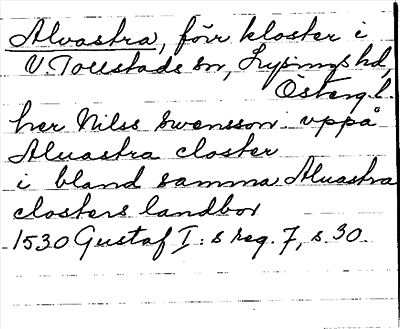 Alvastra, förr kloster i
V. Tollstads sn, Lysings hd,
Österg.l.
her Nilss Swensson vppå
Aluastra closter
i bland samma Aluastra
closters landbor
1530 Gustaf I:s reg. 7, s. 30.